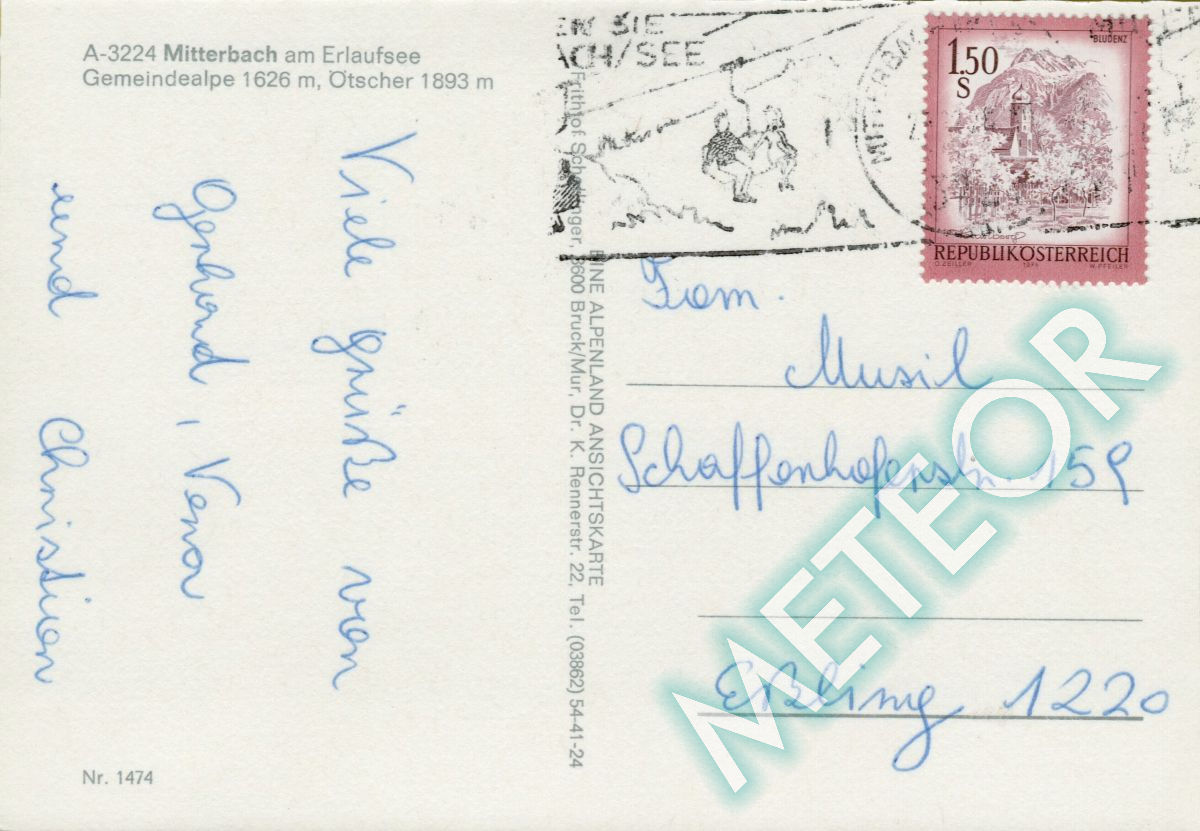 A-3224 Mitterbach am Erlaufsee
Gemeindealpe 1626 m, Ötscher 1893 m
Viele grüße von
Gerhard, Vera
und Christian
Nr. 1474
EINE ALPENLAND ANSICHTSKARTE
Frithjof Schellinger, 8600 Bruck/Mur, Dr. K. Rennerstr. 22, Tel. (03862) 54-41-24
EN SIE
ACH/SEE
MITTERBA
BLUDENZ
1.50
S
REPUBLIK ÖSTERREICH
O. ZEILLER 1974 W. PFEILER
Fam.
Musil
Schaffenhoferstr. 159
Eßling 1220
METEOR